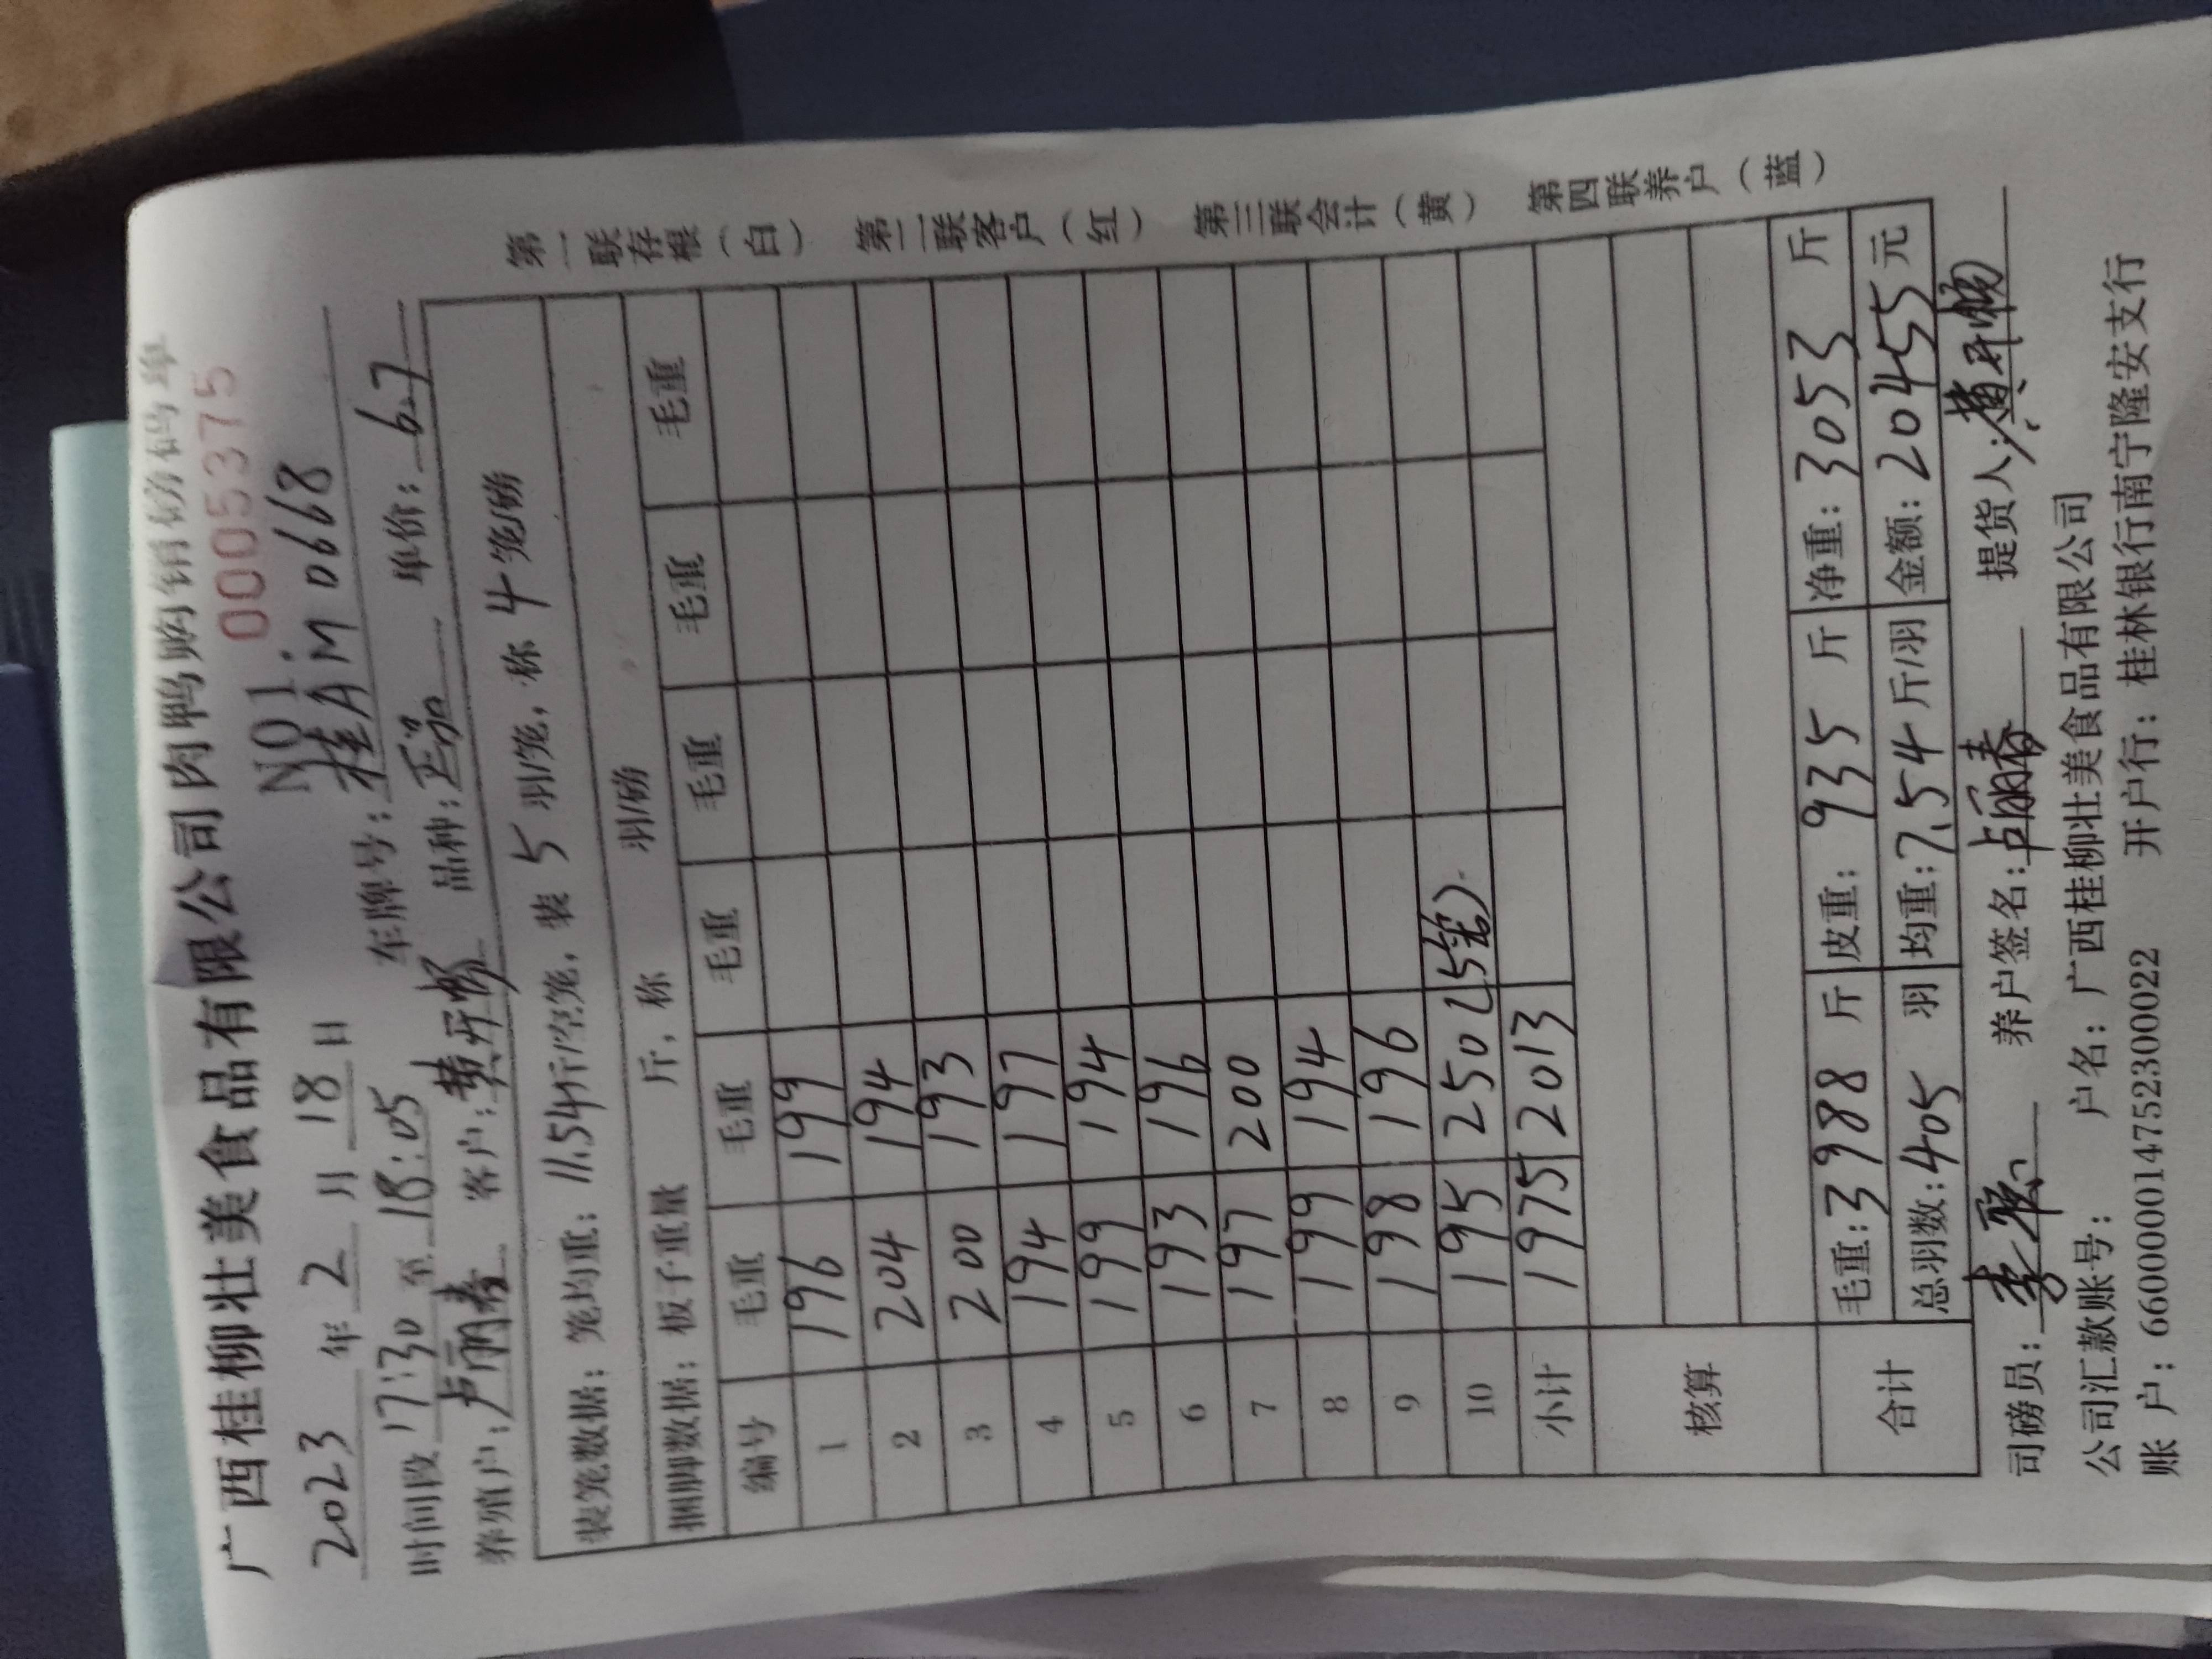 广西桂柳壮美食品有限公司肉鸭购销磅码单
NO1. 00053375
2023 年 2 月 18 日 车牌号: 桂AM0668
时间段 17:30 至 18:05 品种: 单价: 6.7
养殖户: 卢丽春 客户: 黄开畅
装笼数据: 笼均重: 11.54斤/空笼, 装 5 羽/笼, 称 4 笼/磅
捆脚数据: 板子重量 斤, 称 羽/磅
编号 毛重 毛重 毛重 毛重 毛重 毛重
1 196 199
2 204 194
3 200 193
4 194 197
5 199 194
6 193 196
7 197 200
8 199 194
9 198 196
10 195 250 (5笼)
小计 1975 2013
核算
合计 毛重: 3988 斤 皮重: 935 斤 净重: 3053 斤
总羽数: 405 羽 均重: 7.54 斤/羽 金额: 20455 元
司磅员: 养户签名: 卢丽春 提货人: 黄开畅
公司汇款账号: 户名: 广西桂柳壮美食品有限公司
账 户: 660000014752300022 开户行: 桂林银行南宁隆安支行
第一联存根(白) 第二联客户(红) 第三联会计(黄) 第四联养户(蓝)